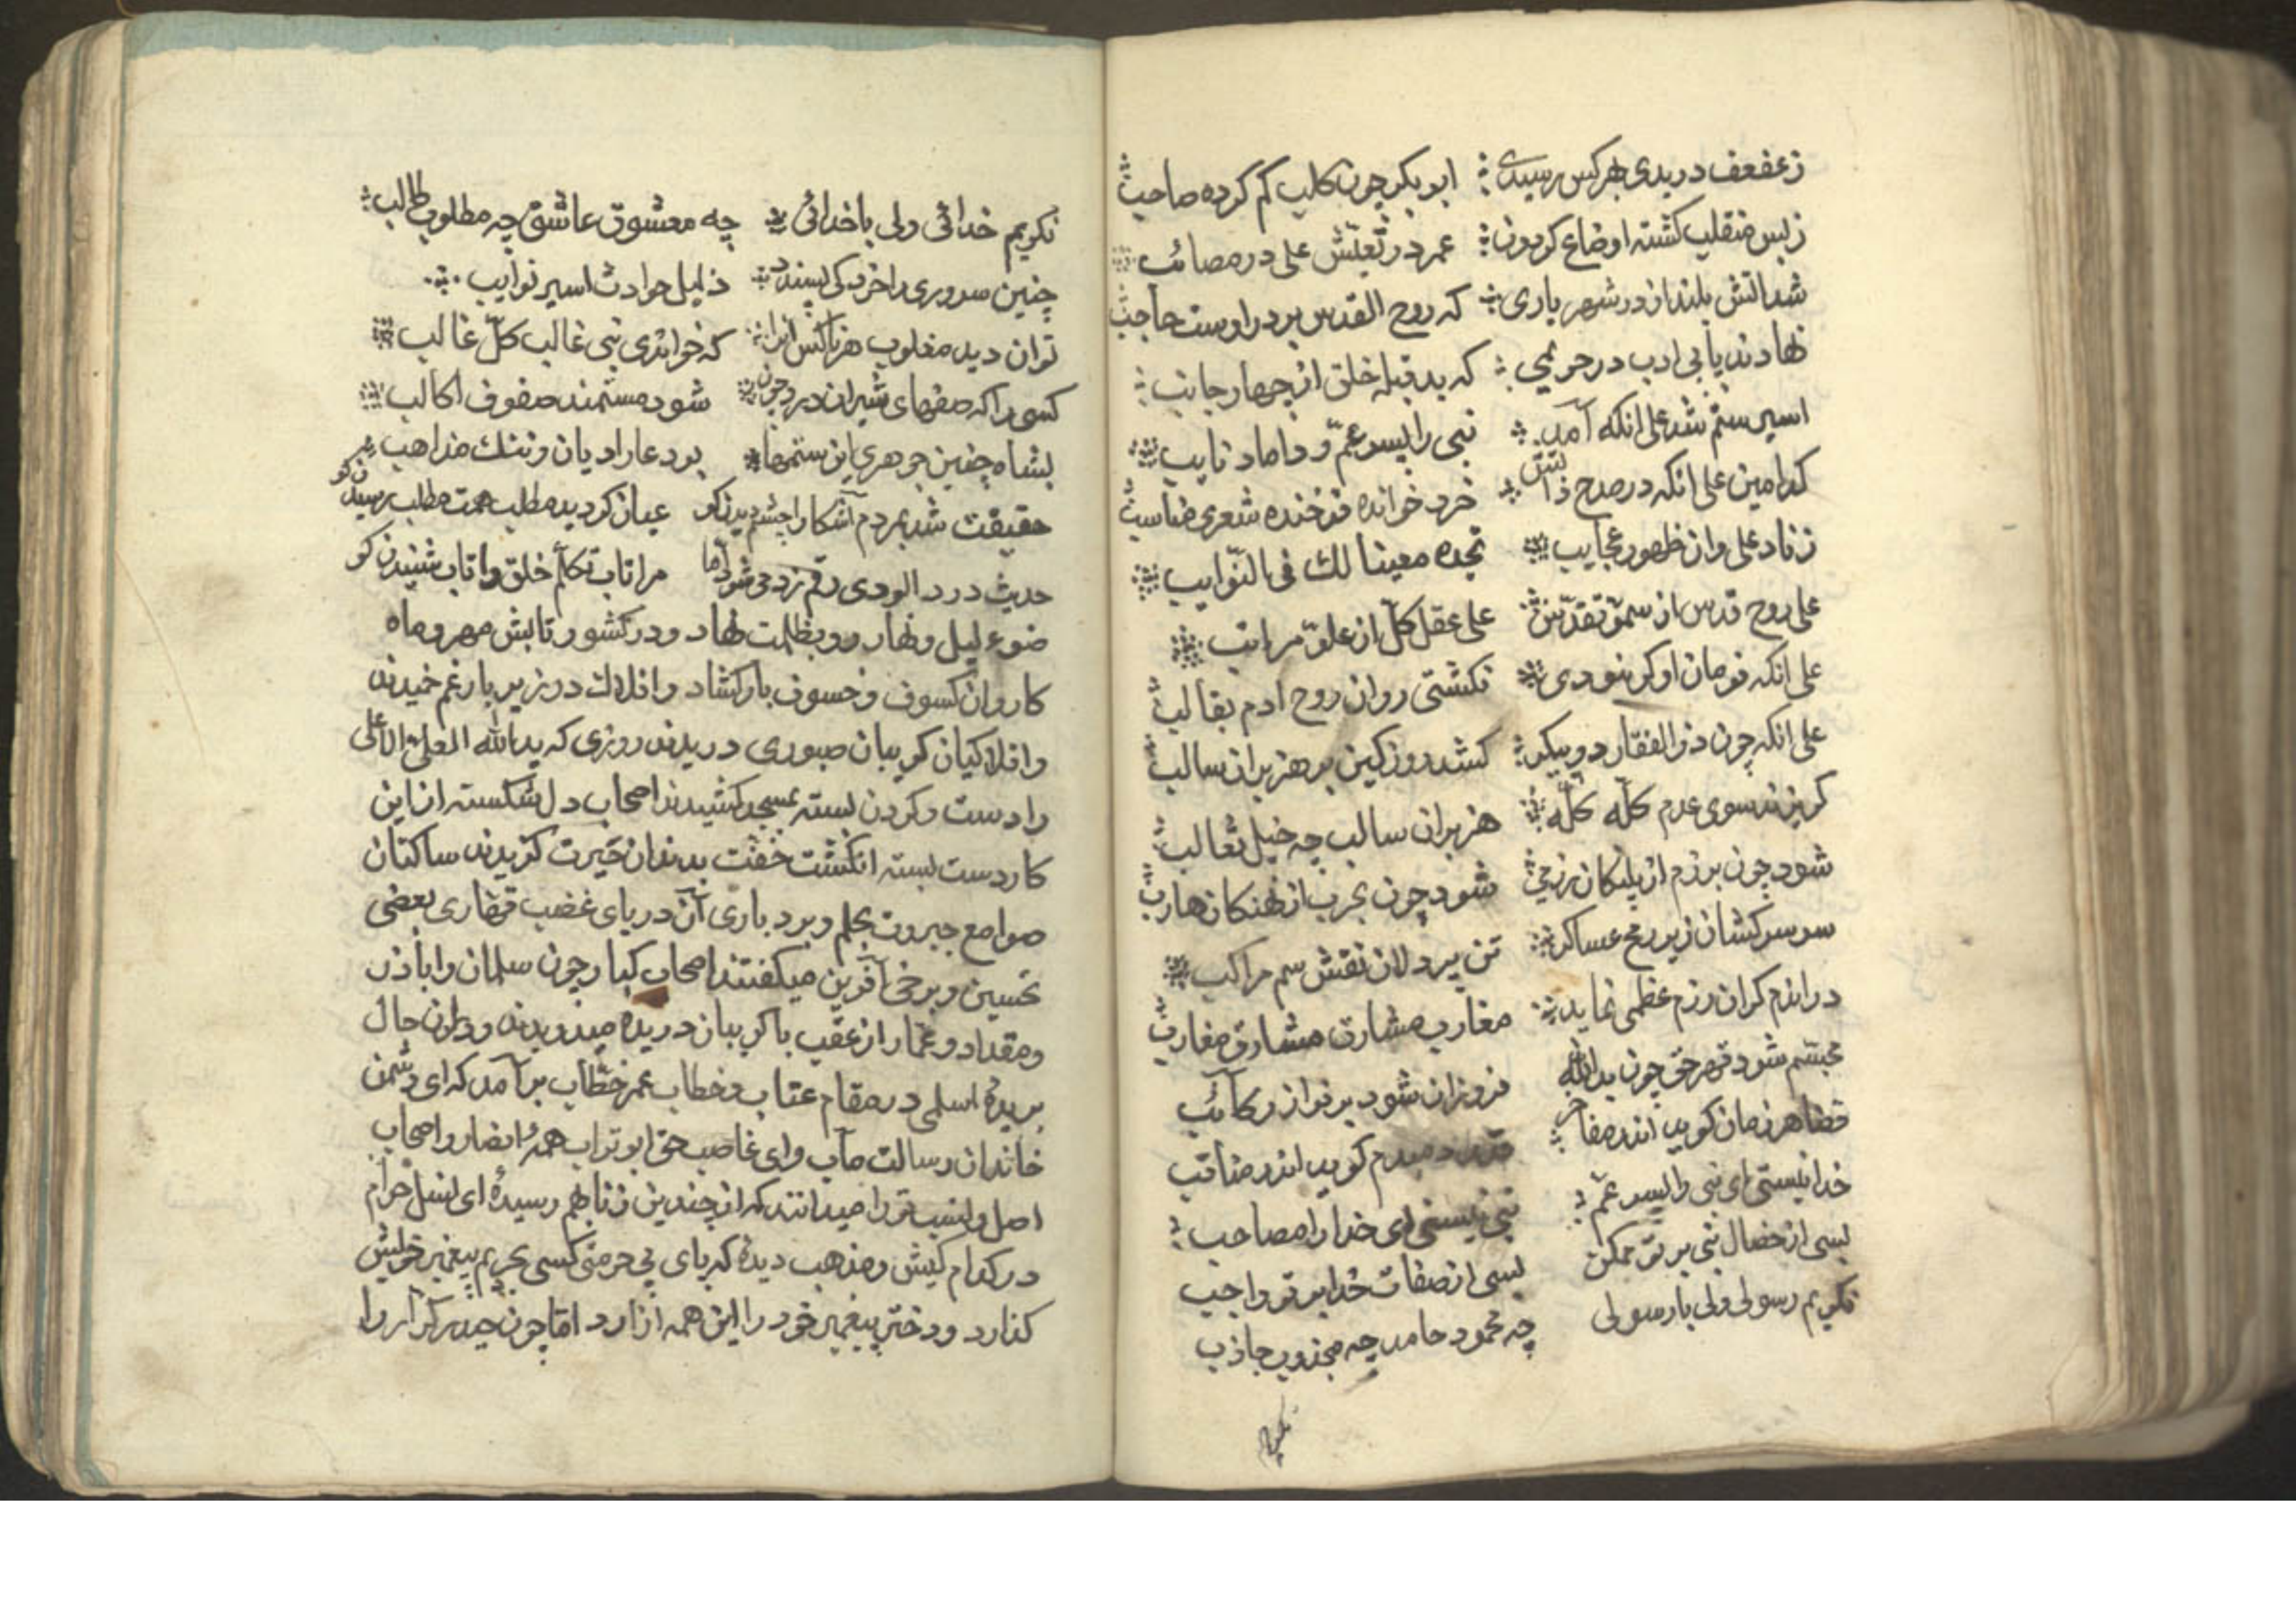 زعفعف دریدی بهرکس رسیدی ابوبکر چون کلب کم کرده صاحب
زبس منقلب کشته اوضاع کردون عمر در تعیّش علی در مصائب
شد اتش بلند از در شهریاری که روح القدس بر در اوست حاجب
نهادند پا بی ادب در حریمی که بد قبله خلق از چهار جانب
اسیر ستم شد علی انکه آمد نبی را پسر عمّ و داماد نایب
کدامین علی انکه در مدح ذاتش خرد خوانده فرخنده شعری مناسب
زناد علی وان ظهور عجایب تجده معینا لك فی النّوایب
علی روح قدس از سموّ تقدّس علی عقل کلّ از علوّ مراتب
علی انکه فرمان او کر نبودی نکشتی روان روح ادم بقالب
علی انکه چون ذوالفقار دو پیکر کشد روز کین بر هزبران سالب
کریزند سوی عدم کلّه کلّه هزبران سالب چه خیل ثعالب
شود چون برزم از پلنکان رزمی شود چون بحرب از نهنکان هارب
سر سرکشان زیر رمح عساکر تن پردلان نقش سم مراکب
در اندم کران رزم عظمی نماید مغارب مشارق مشارق مغارب
مجسّم شود قهر حق چون یدالله فروزان شود برفراز رکائب
قضا هر زمان کوید اندر مفاخر قدر دمبدم کوید اندر مناقب
خدا نیستی ای نبی را پسر عمّ نبی نیستی ای خدا را مصاحب
بسی از خصال نبی بر تو ممکن بسی از صفات خدا بر تو واجب
نکویم رسولی ولی با رسولی چه محمود حامد چه مجذوب جاذب
نکویم
نکویم خدائی ولی با خدائی چه معشوق عاشق چه مطلوب طالب
چنین سروری را خرد کی پسندد ذلیل حوادث اسیر نوایب
توان دید مغلوب هر ناکس انرا که خواندی نبی غالب کلّ غالب
کسی را که صفهای شیران درد چون شود مستمند صفوف اکالب
بشاه چنین جوهری این ستمها بود عار ادیان و ننك مذاهب
حقیقت شد بمردم آشکارا چشم دیدن کو عیان کردید مطلب همت مطلب رسیدن کو
حدیث درد الودی رقم زد می شود اما مرا تاب تکلّم خلق را تاب شنیدن کو
ضوء لیل و نهار رو بظلمت نهاد و در کشور تابش مهر و ماه
کاروان کسوف و خسوف بار کشاد و افلاك در زیر بار غم خمیدند
و افلاکیان کریبان صبوری دریدند روزی که ید الله المعلی الاعلی
را دست و کردن بسته بمسجد کشیدند اصحاب دل شکسته از این
کار دست بسته انکشت خفّت بدندان حیرت کزیدند ساکنان
صوامع جبروت بحلم و بردباری آن دریای غضب قهّاری بعضی
تحسین و برخی آفرین میکفتند اصحاب کبار چون سلمان و اباذر
و مقداد و عمّار از عقب با کریبان دریده میدویدند و در ان حال
بریدهٔ اسلمی در مقام عتاب و خطاب عمر خطّاب بر آمد که ای دشمن
خاندان رسالت مآب و ای غاصب حق ابو تراب همهٔ انصار و اصحاب
اصل و نسب تو را میدانند که از چندین زنا بهم رسیدهٔ ای نسل حرام
در کدام کیش و مذهب دیدهٔ که پای بی حرمتی کسی بحریم پیغمبر خویش
کذارد و دختر پیغمبر خود را این همه آزارد امّا چون حیدر کرّار را